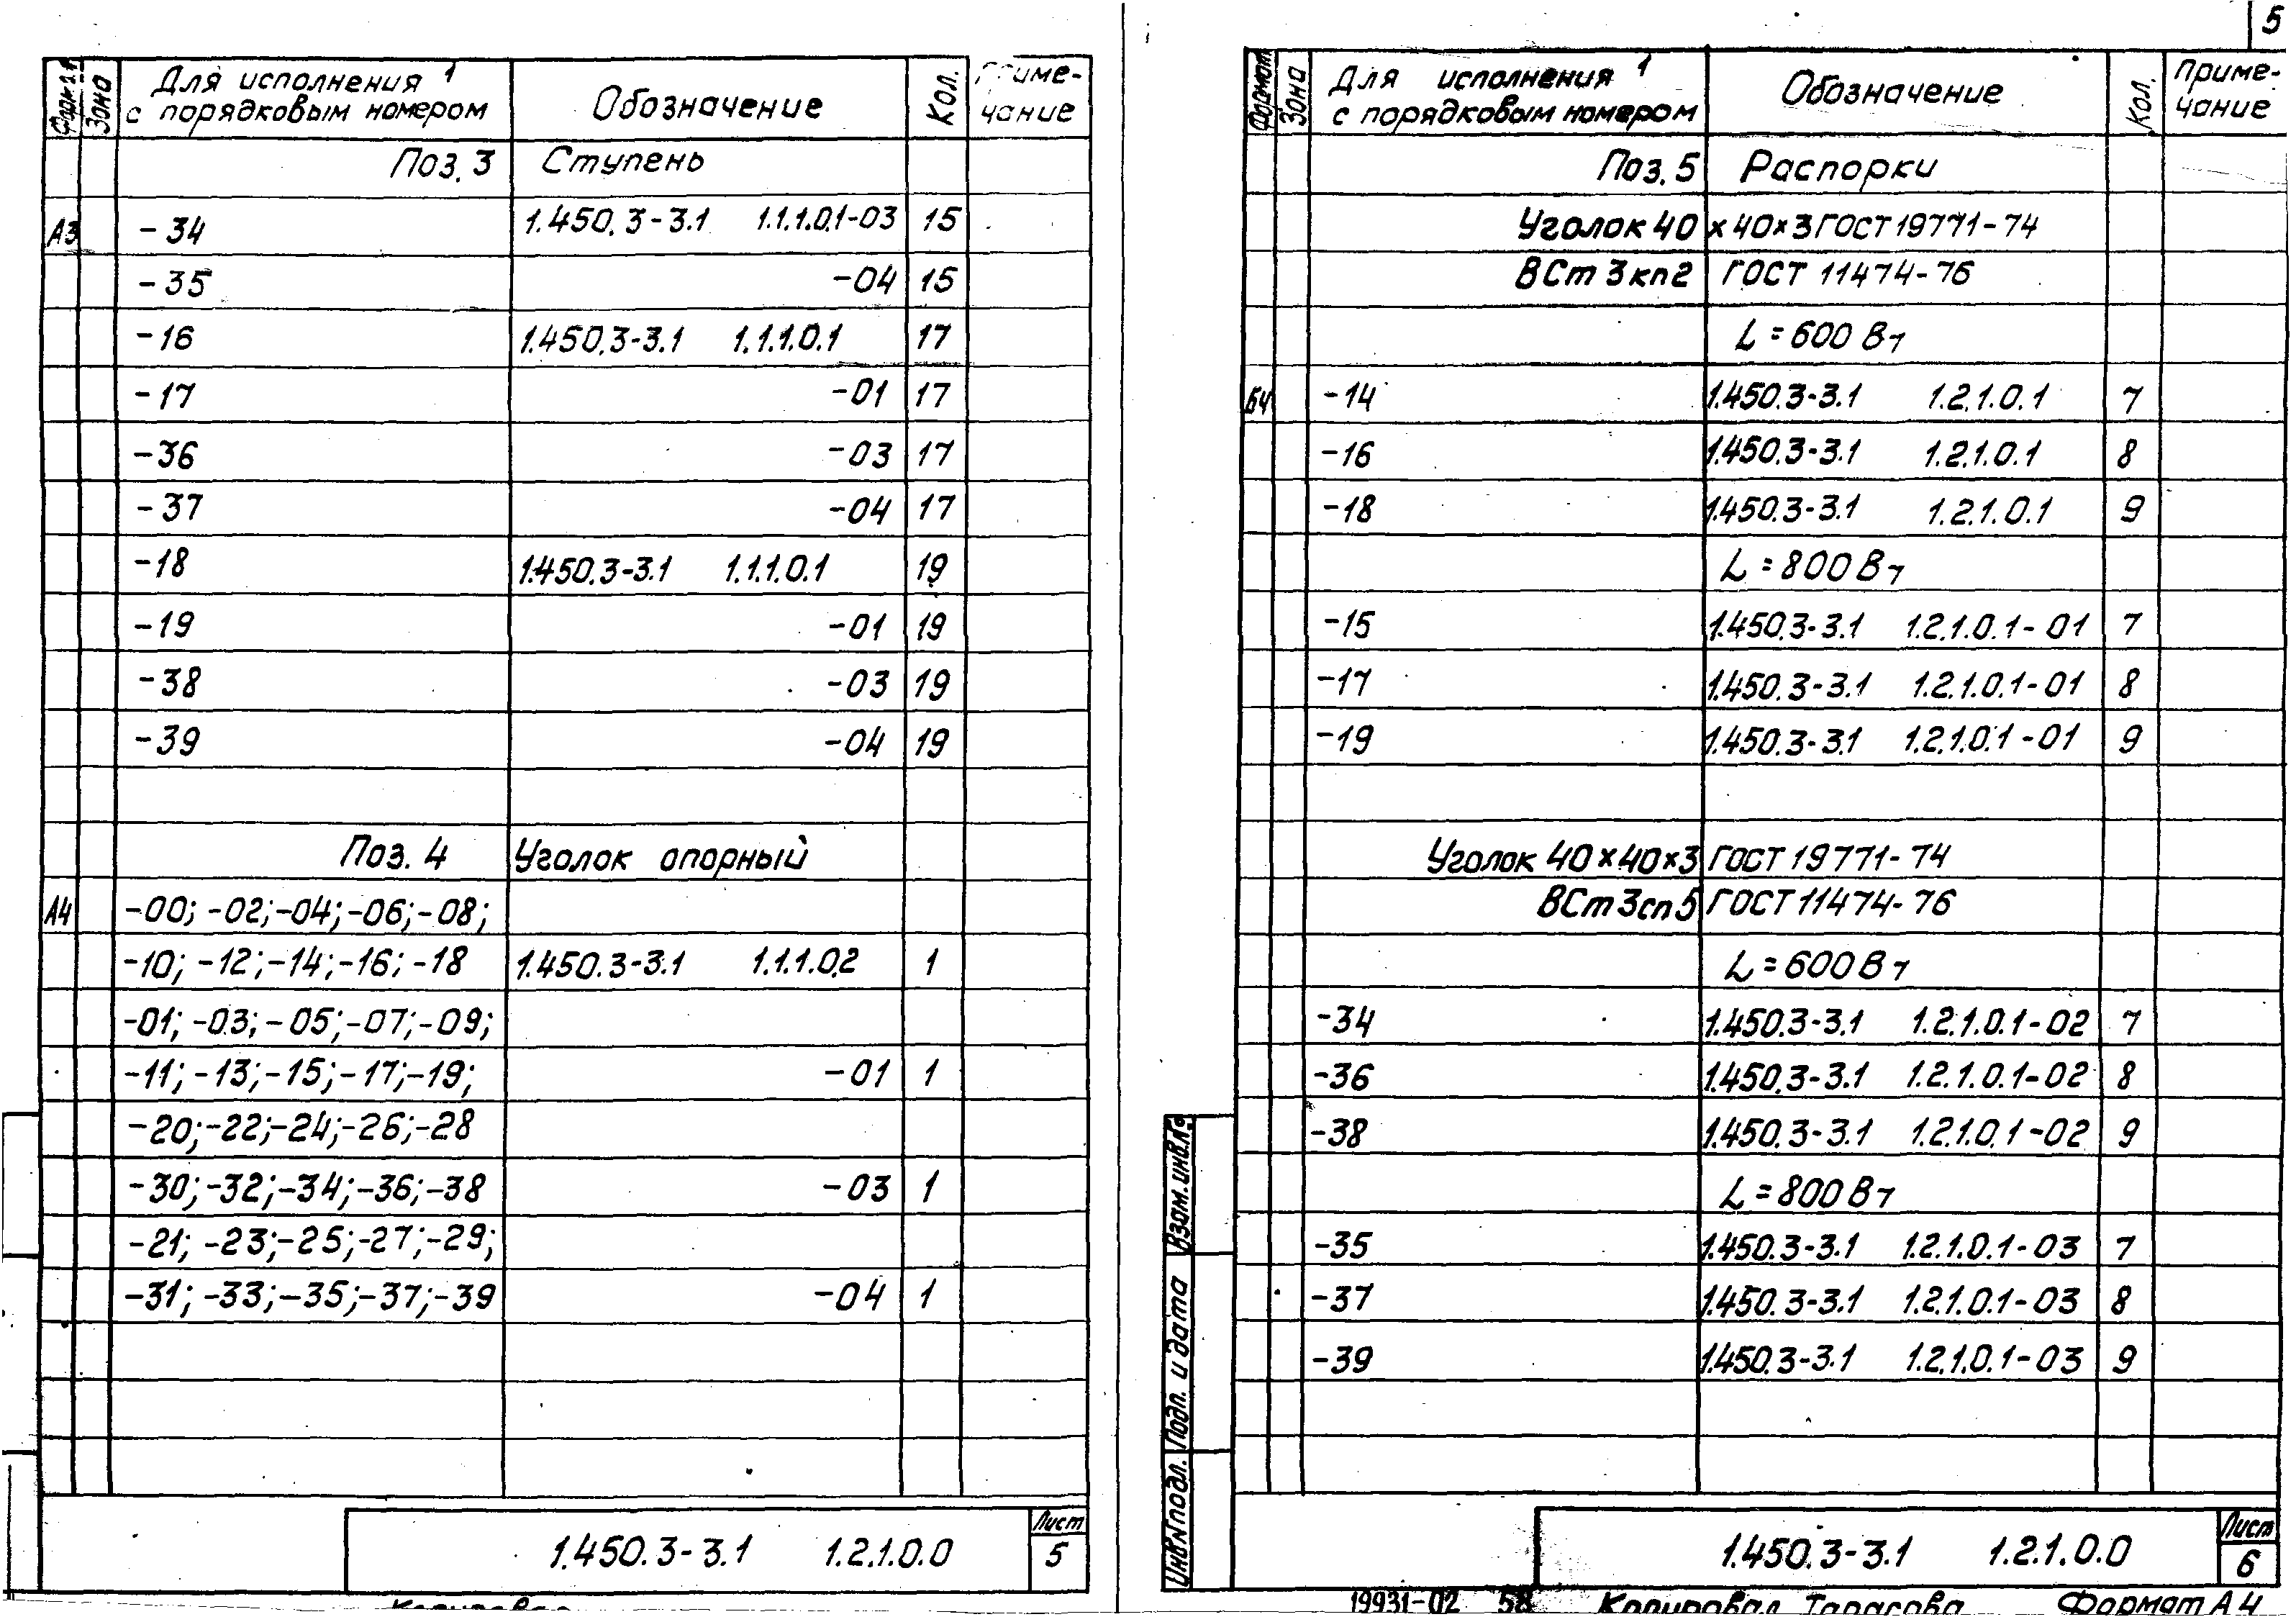 Зона
Для исполнения 1
с порядковым номером
Обозначение
Кол.
чание
Поз. 3 Ступень
А3 -34 1.450.3-3.1 1.1.1.0.1-03 15
-35 -04 15
-16 1.450.3-3.1 1.1.1.0.1 17
-17 -01 17
-36 -03 17
-37 -04 17
-18 1.450.3-3.1 1.1.1.0.1 19
-19 -01 19
-38 -03 19
-39 -04 19
Поз. 4 Уголок опорный
А4 -00; -02; -04; -06; -08;
-10; -12; -14; -16; -18 1.450.3-3.1 1.1.1.0.2 1
-01; -03; -05; -07; -09;
-11; -13; -15; -17; -19; -01 1
-20; -22; -24; -26; -28
-30; -32; -34; -36; -38 -03 1
-21; -23; -25; -27; -29;
-31; -33; -35; -37; -39 -04 1
1.450.3-3.1 1.2.1.0.0
Лист
5
5
Формат
Зона
Для исполнения 1
с порядковым номером
Обозначение
Кол.
Приме-
чание
Поз. 5 Распорки
Уголок 40 х 40х3 ГОСТ 19771-74
ВСт 3кп2 ГОСТ 11474-76
L = 600 Вт
Б4 -14 1.450.3-3.1 1.2.1.0.1 7
-16 1.450.3-3.1 1.2.1.0.1 8
-18 1.450.3-3.1 1.2.1.0.1 9
L = 800 Вт
-15 1.450.3-3.1 1.2.1.0.1-01 7
-17 1.450.3-3.1 1.2.1.0.1-01 8
-19 1.450.3-3.1 1.2.1.0.1-01 9
Уголок 40х40х3 ГОСТ 19771-74
ВСт3сп5 ГОСТ 11474-76
L = 600 Вт
-34 1.450.3-3.1 1.2.1.0.1-02 7
-36 1.450.3-3.1 1.2.1.0.1-02 8
-38 1.450.3-3.1 1.2.1.0.1-02 9
L = 800 Вт
-35 1.450.3-3.1 1.2.1.0.1-03 7
-37 1.450.3-3.1 1.2.1.0.1-03 8
-39 1.450.3-3.1 1.2.1.0.1-03 9
Взам. инв. №
Подп. и дата
Инв № подл.
1.450.3-3.1 1.2.1.0.0
Лист
6
19931-02 58 Копировал Тарасова Формат А4